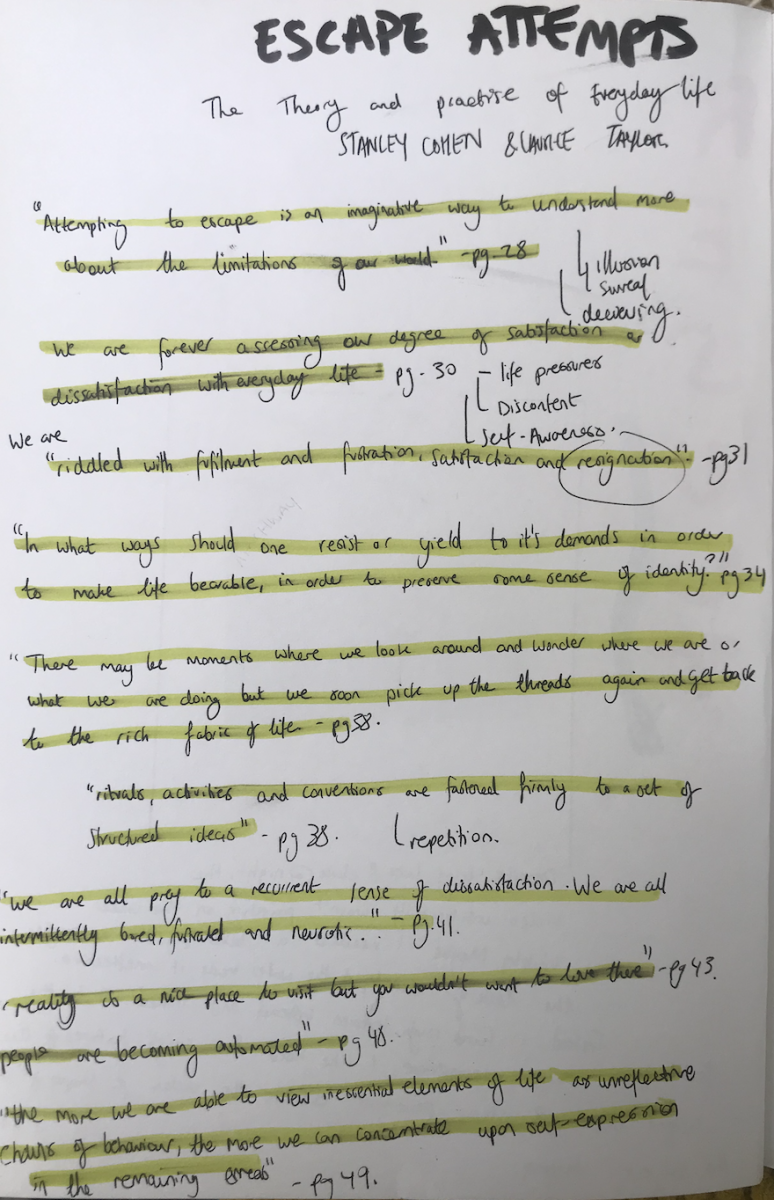 ESCAPE ATTEMPTS
The Theory and practise of Everyday life
STANLEY COHEN & LAURIE TAYLOR.
"Attempting to escape is an imaginative way to understand more
about the limitations of our world." - pg.28
illusion
surreal
deceiving.
We are forever assessing our degree of satisfaction or
dissatisfaction with everyday life - pg.30
- life pressures
Discontent
Self-Awareness.
We are
"riddled with fulfilment and frustration, satisfaction and resignation". - pg31
"In what ways should one resist or yield to it's demands in order
to make life bearable, in order to preserve some sense of identity?" pg34
"There may be moments where we look around and wonder where we are or
what we are doing but we soon pick up the threads again and get back
to the rich fabric of life - pg38.
"rituals, activities and conventions are fastened firmly to a set of
structured ideas" - pg 38.
repetition.
"we are all prey to a recurrent sense of dissatisfaction. We are all
intermittently bored, frustrated and neurotic." - pg.41.
reality is a nice place to visit but you wouldn't want to love there" - pg 43.
people are becoming automated" - pg 48.
"the more we are able to view inessential elements of life as unreflective
chains of behaviour, the more we can concentrate upon self-expression
in the remaining areas"
- pg 49.